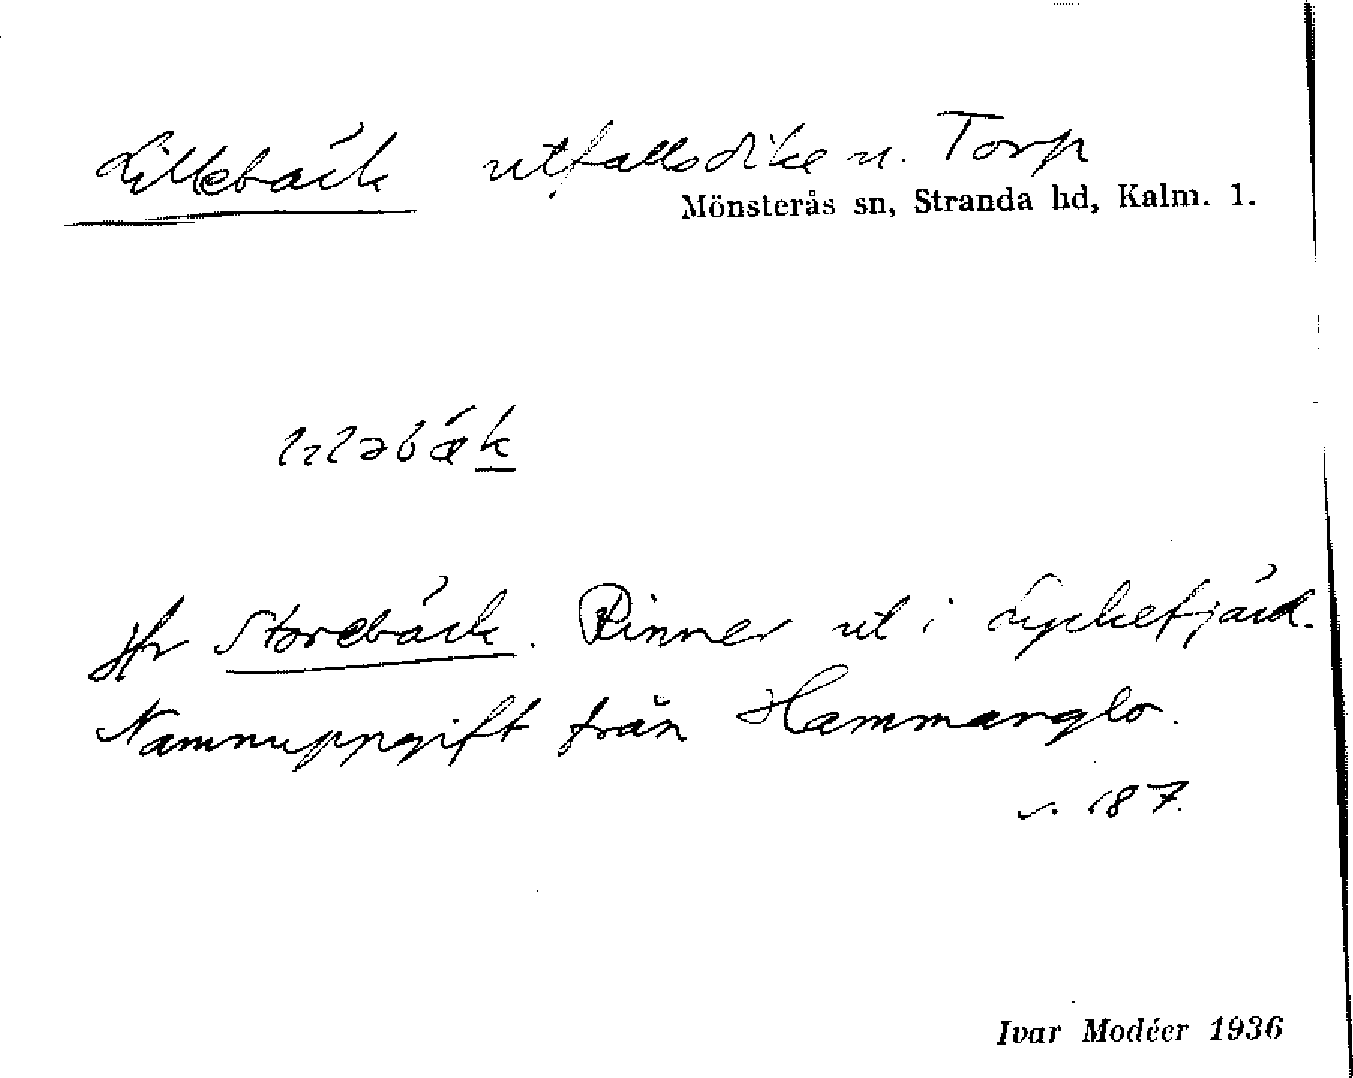 Lillebäck utfallsdike u. Torp
Mönsterås sn, Stranda hd, Kalm. l.
lıləbǽk
Jfr Storebäck. Rinner ut i
Namnuppgift från Hammarglo.
s. 187.
Ivar Modéer 1936